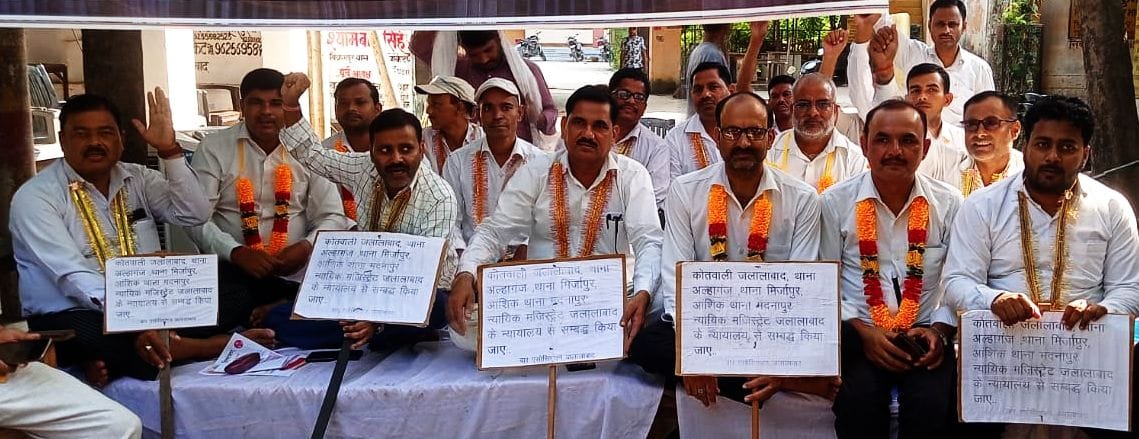 कोतवाली जलालाबाद, थाना
अल्हागंज ,थाना मिर्जापुर,
आंशिक थाना मदनापुर
न्यायिक मजिस्ट्रेट जलालाबाद
के न्यायालय से सम्बद्ध किया
जाए..
बार एसोसिएशन जलालाबाद
कोतवाली जलालाबाद, थाना
अल्हागंज ,थाना मिर्जापुर,
आंशिक थाना मदनापुर
न्यायिक मजिस्ट्रेट जलालाबाद
के न्यायालय से सम्बद्ध किया
जाए..
बार एसोसिएशन जलालाबाद
कोतवाली जलालाबाद, थाना
अल्हागंज ,थाना मिर्जापुर,
आंशिक थाना मदनापुर
न्यायिक मजिस्ट्रेट जलालाबाद
के न्यायालय से सम्बद्ध किया
जाए..
बार एसोसिएशन जलालाबाद
कोतवाली जलालाबाद, थाना
अल्हागंज ,थाना मिर्जापुर,
आंशिक थाना मदनापुर,
न्यायिक मजिस्ट्रेट जलालाबाद
के न्यायालय से सम्बद्ध किया
जाए..
बार एसोसिएशन जलालाबाद
कोतवाली जलालाबाद, थाना
अल्हागंज ,थाना मिर्जापुर,
आंशिक थाना मदनापुर
न्यायिक मजिस्ट्रेट जलालाबाद
के न्यायालय से सम्बद्ध किया
जाए..
बार एसोसिएशन जलालाबाद